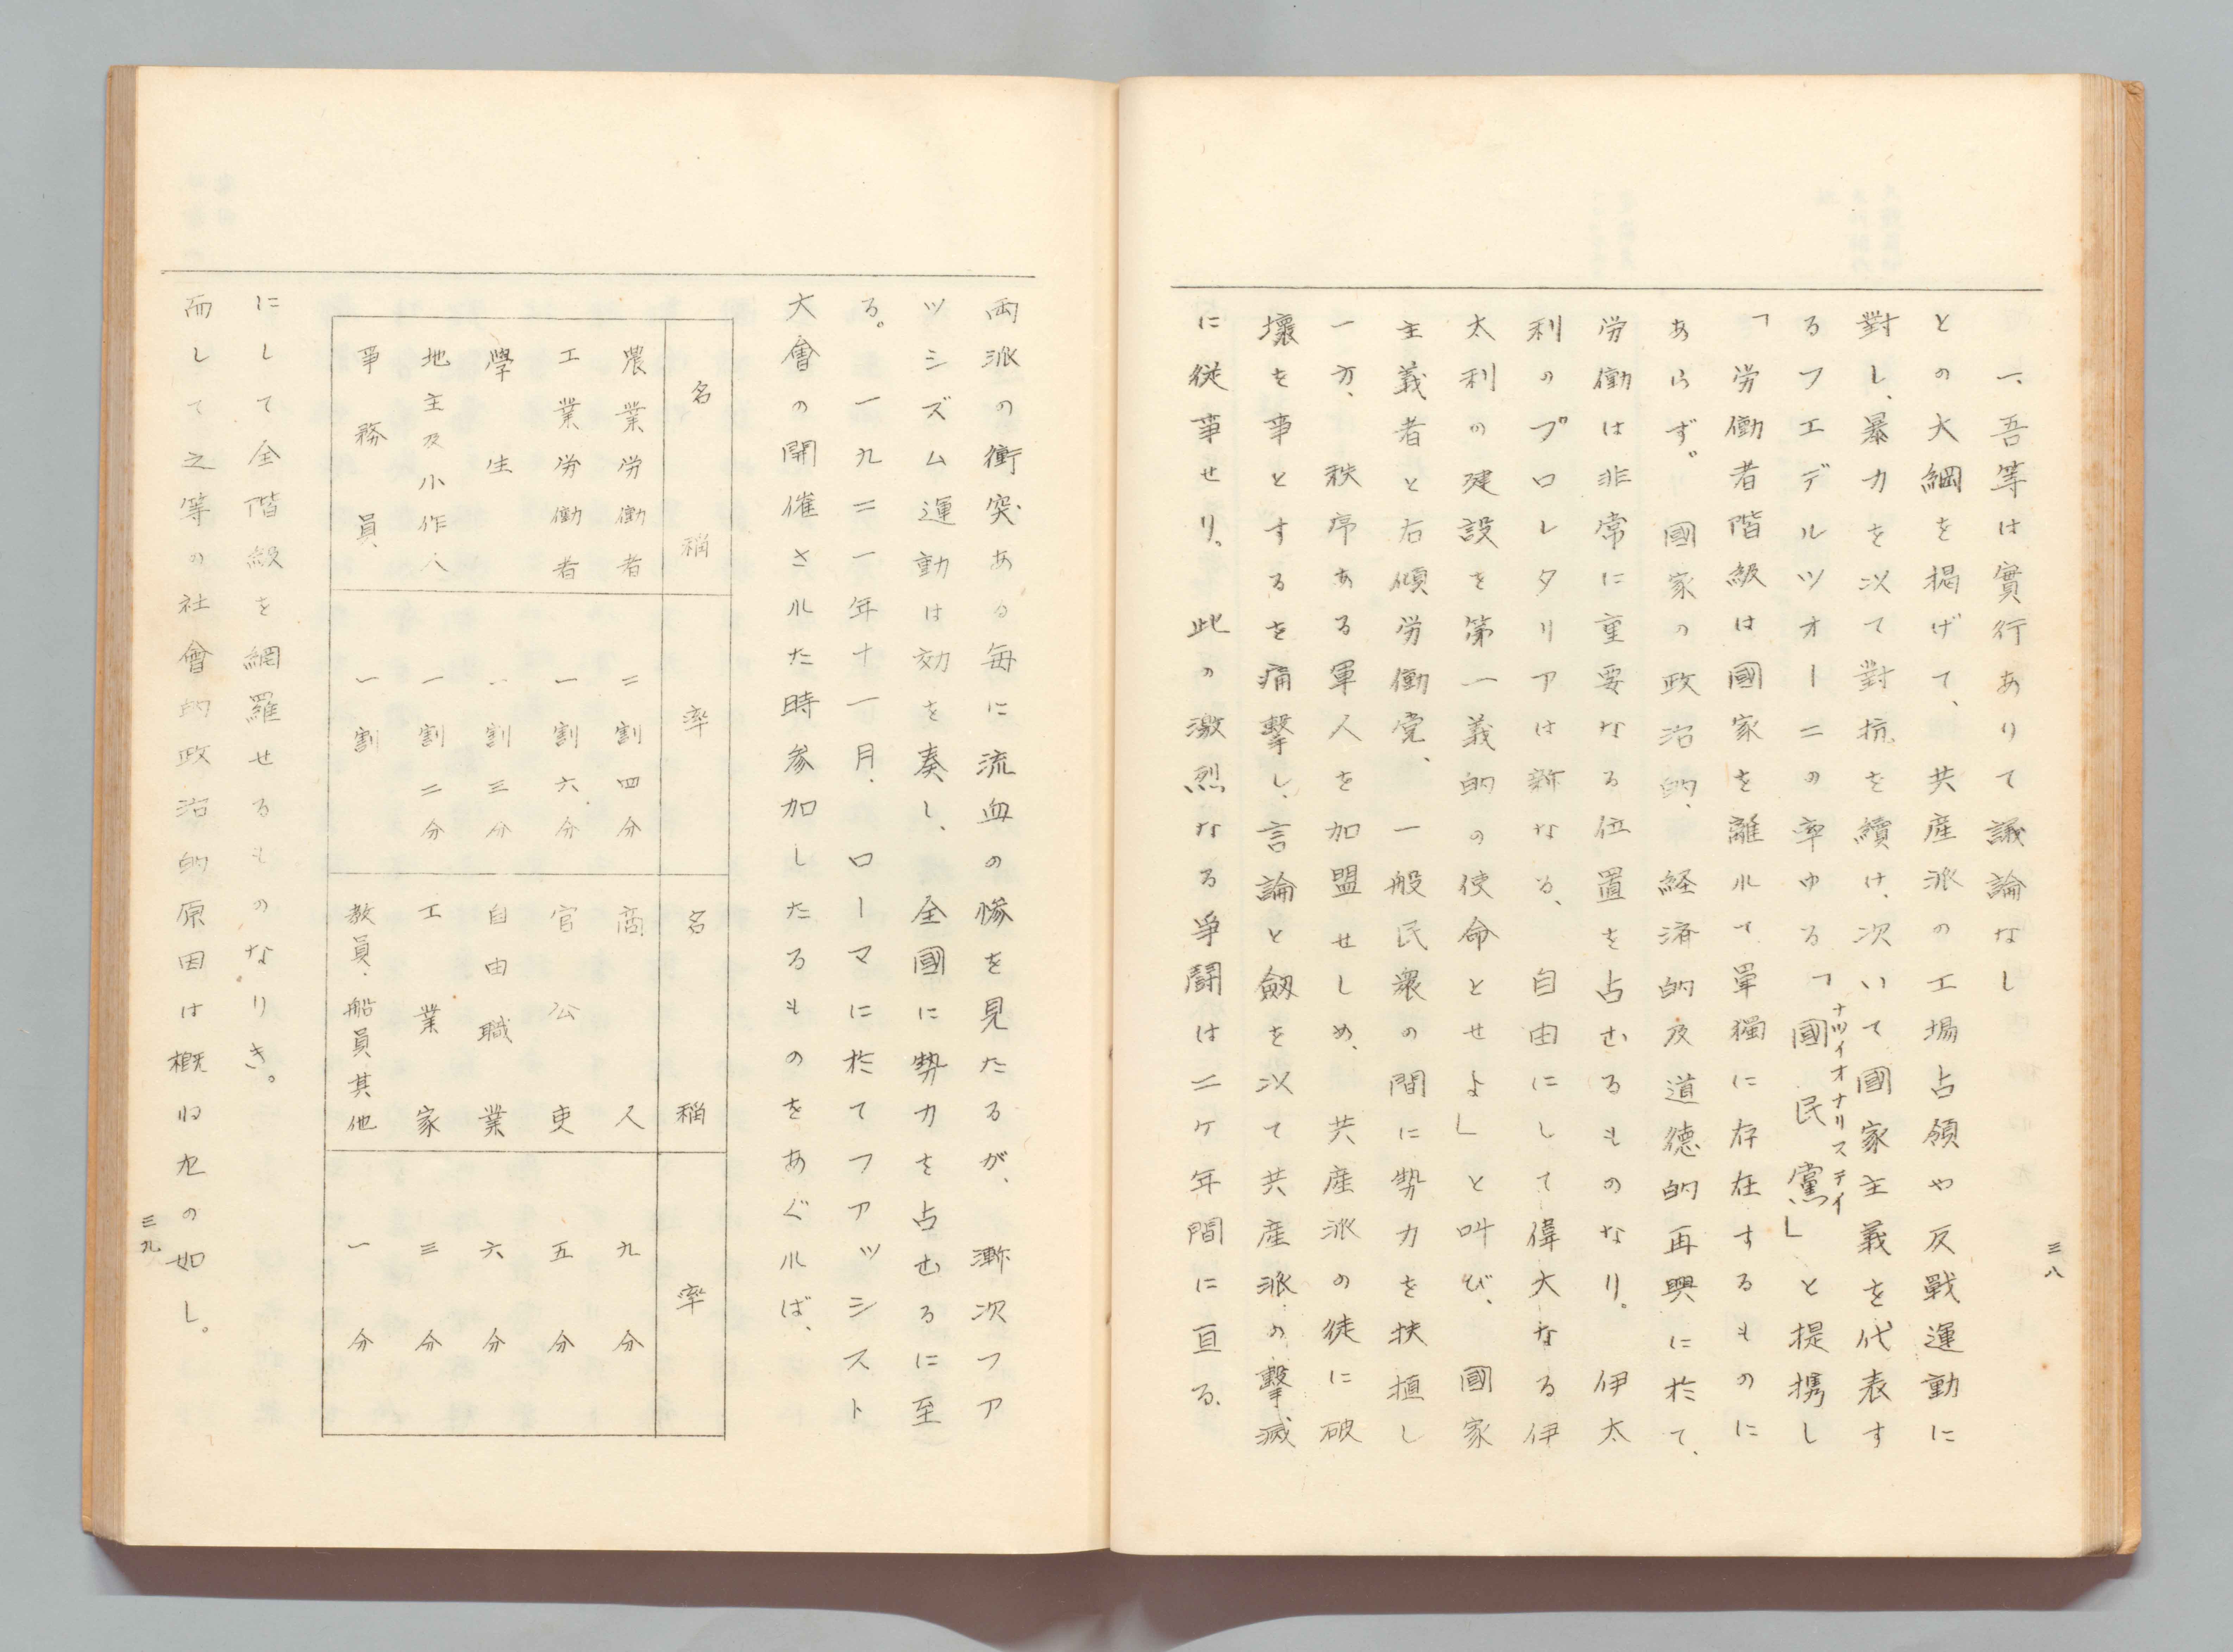 三八
一、吾等は實行ありて議論なし
との大綱を掲げて、共産派の工場占領や反戰運動に
對し、暴力を以て對抗を續け、次いで國家主義を代表す
るフエデルツオーニの率ゆる「國民黨」と提携し
ナツイオナリスティ
「労働者階級は國家を離れて單獨に存在するものに
あらず。國家の政治的、経済的及道德的再興に於て、
労働は非常に重要なる位置を占むるものなり。伊太
利のプロレタリアは新なる、自由にして偉大なる伊
太利の建設を第一義的の使命とせよ」と叫び、國家
主義者と右傾労働党、一般民衆の間に勢力を扶植し
一方、秩序ある軍人を加盟せしめ、共産派の徒に破
壞を事とするを痛擊し、言論と劔を以て共産派の擊滅
に従事せり。此の激烈なる爭闘は二ケ年間に亘る、
両派の衝突ある毎に流血の慘を見たるが、漸次フア
ツシズム運動は効を奏し、全國に勢力を占むるに至
る。一九二一年十一月、ローマに於てフアツシスト
大會の開催された時参加したるものをあぐれば、
名稱 率 名稱 率
農業労働者 二割四分 商人 九分
工業労働者 一割六分 官公吏 五分
學生 一割三分 自由職業 六分
地主及小作人 一割二分 工業家 三分
事務員 一割 教員、船員其他 一分
にして全階級を網羅せるものなりき。
而して之等の社會的政治的原因は概ね左の如し。
三九